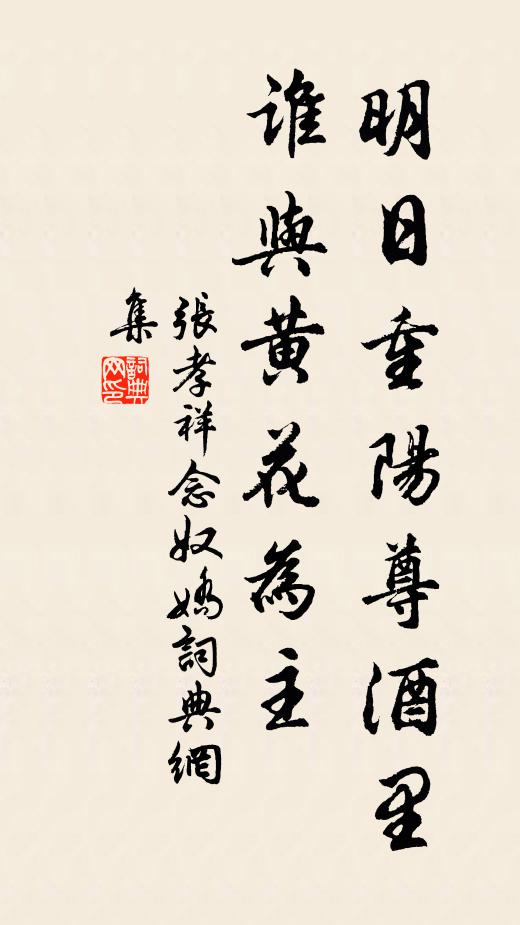 明日重陽尊酒里
誰與黃花為主
張孝祥念奴嬌詞典網
集
詞典網印